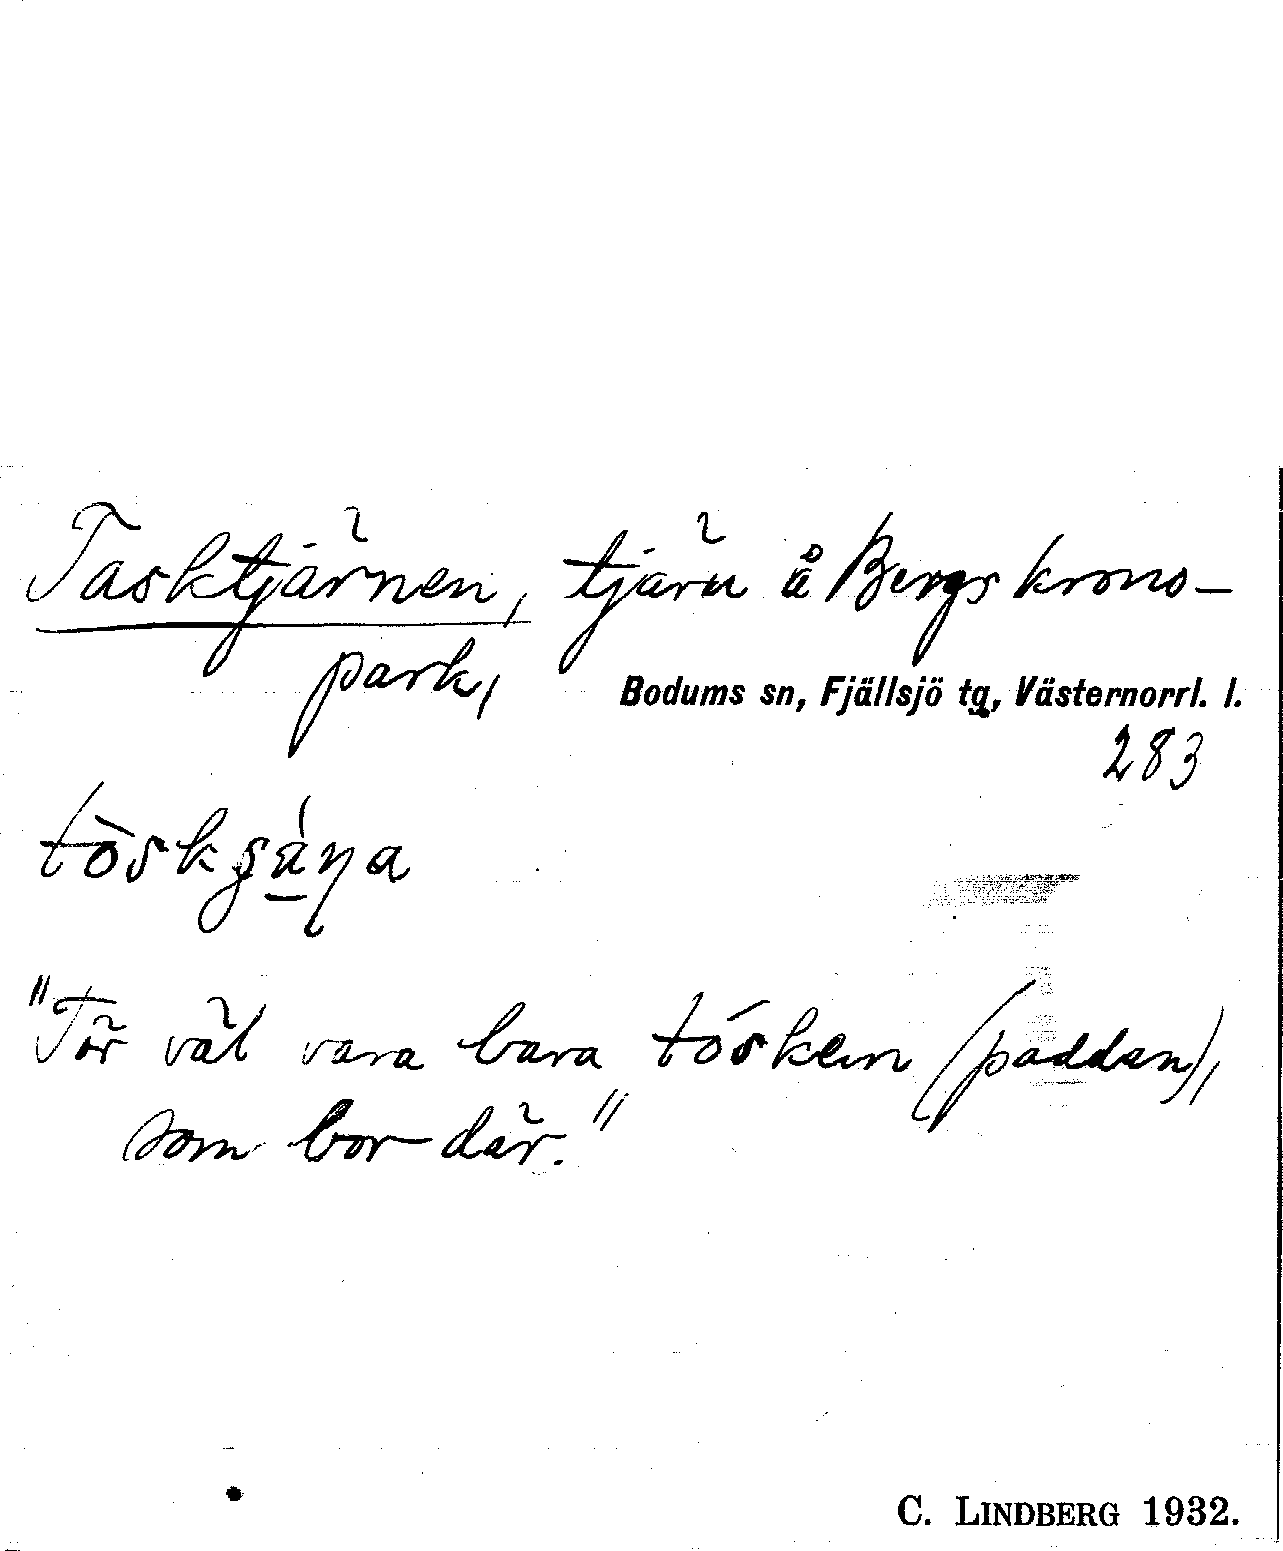 Tasktjärnen, tjärn å Bergs krono-
park,
Bodums sn, Fjällsjö tg, Västernorrl. l.
283
"Tör väl vara bara tósken (paddan),
som bor där."
C. LINDBERG 1932.